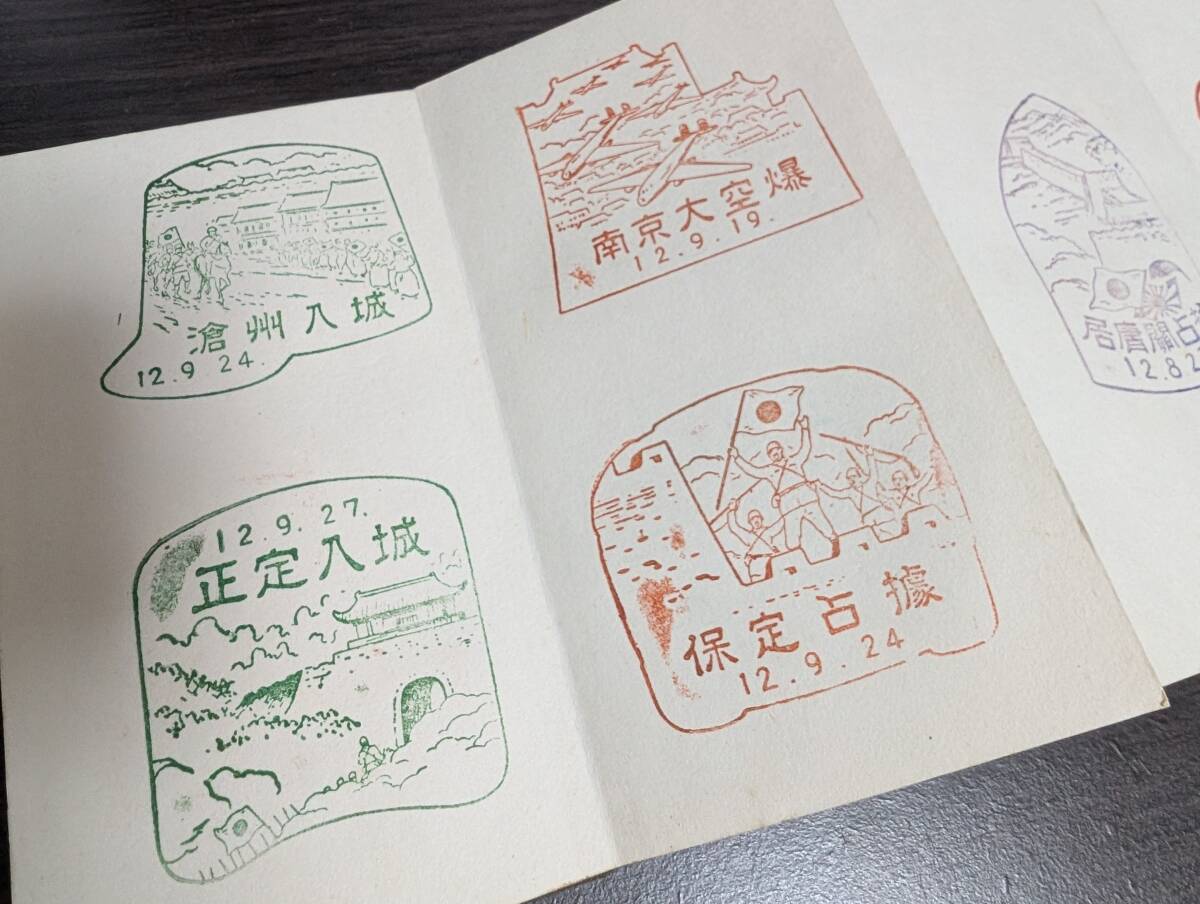 滄州入城
12.9 24.
12.9.27.
正定入城
南京大空爆
12.9.19.
保定占據
12.9.24
居庸關占
12.8.2